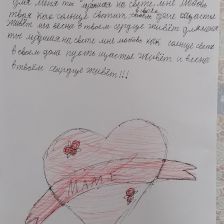 Для меня ты лучшая на свете мне
твоя как солнце светит в своём доме счастье
живёт и весна в твоём сердце живёт для меня
ты лучшая на свете мне как солнце светит
в своём доме пусть счастье живёт и весна
в твоём сердце живёт!!!
МАМЕ